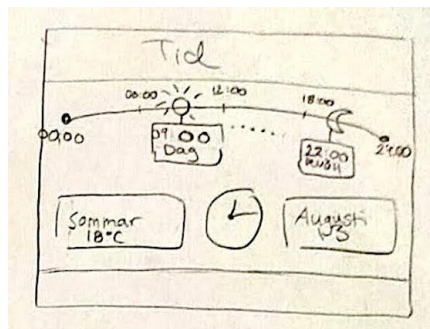 Tid
06:00
12:00
18:00
00,00
09:00
Dag
22:00
Kväll
24:00
Sommar
18°C
Augusti
13